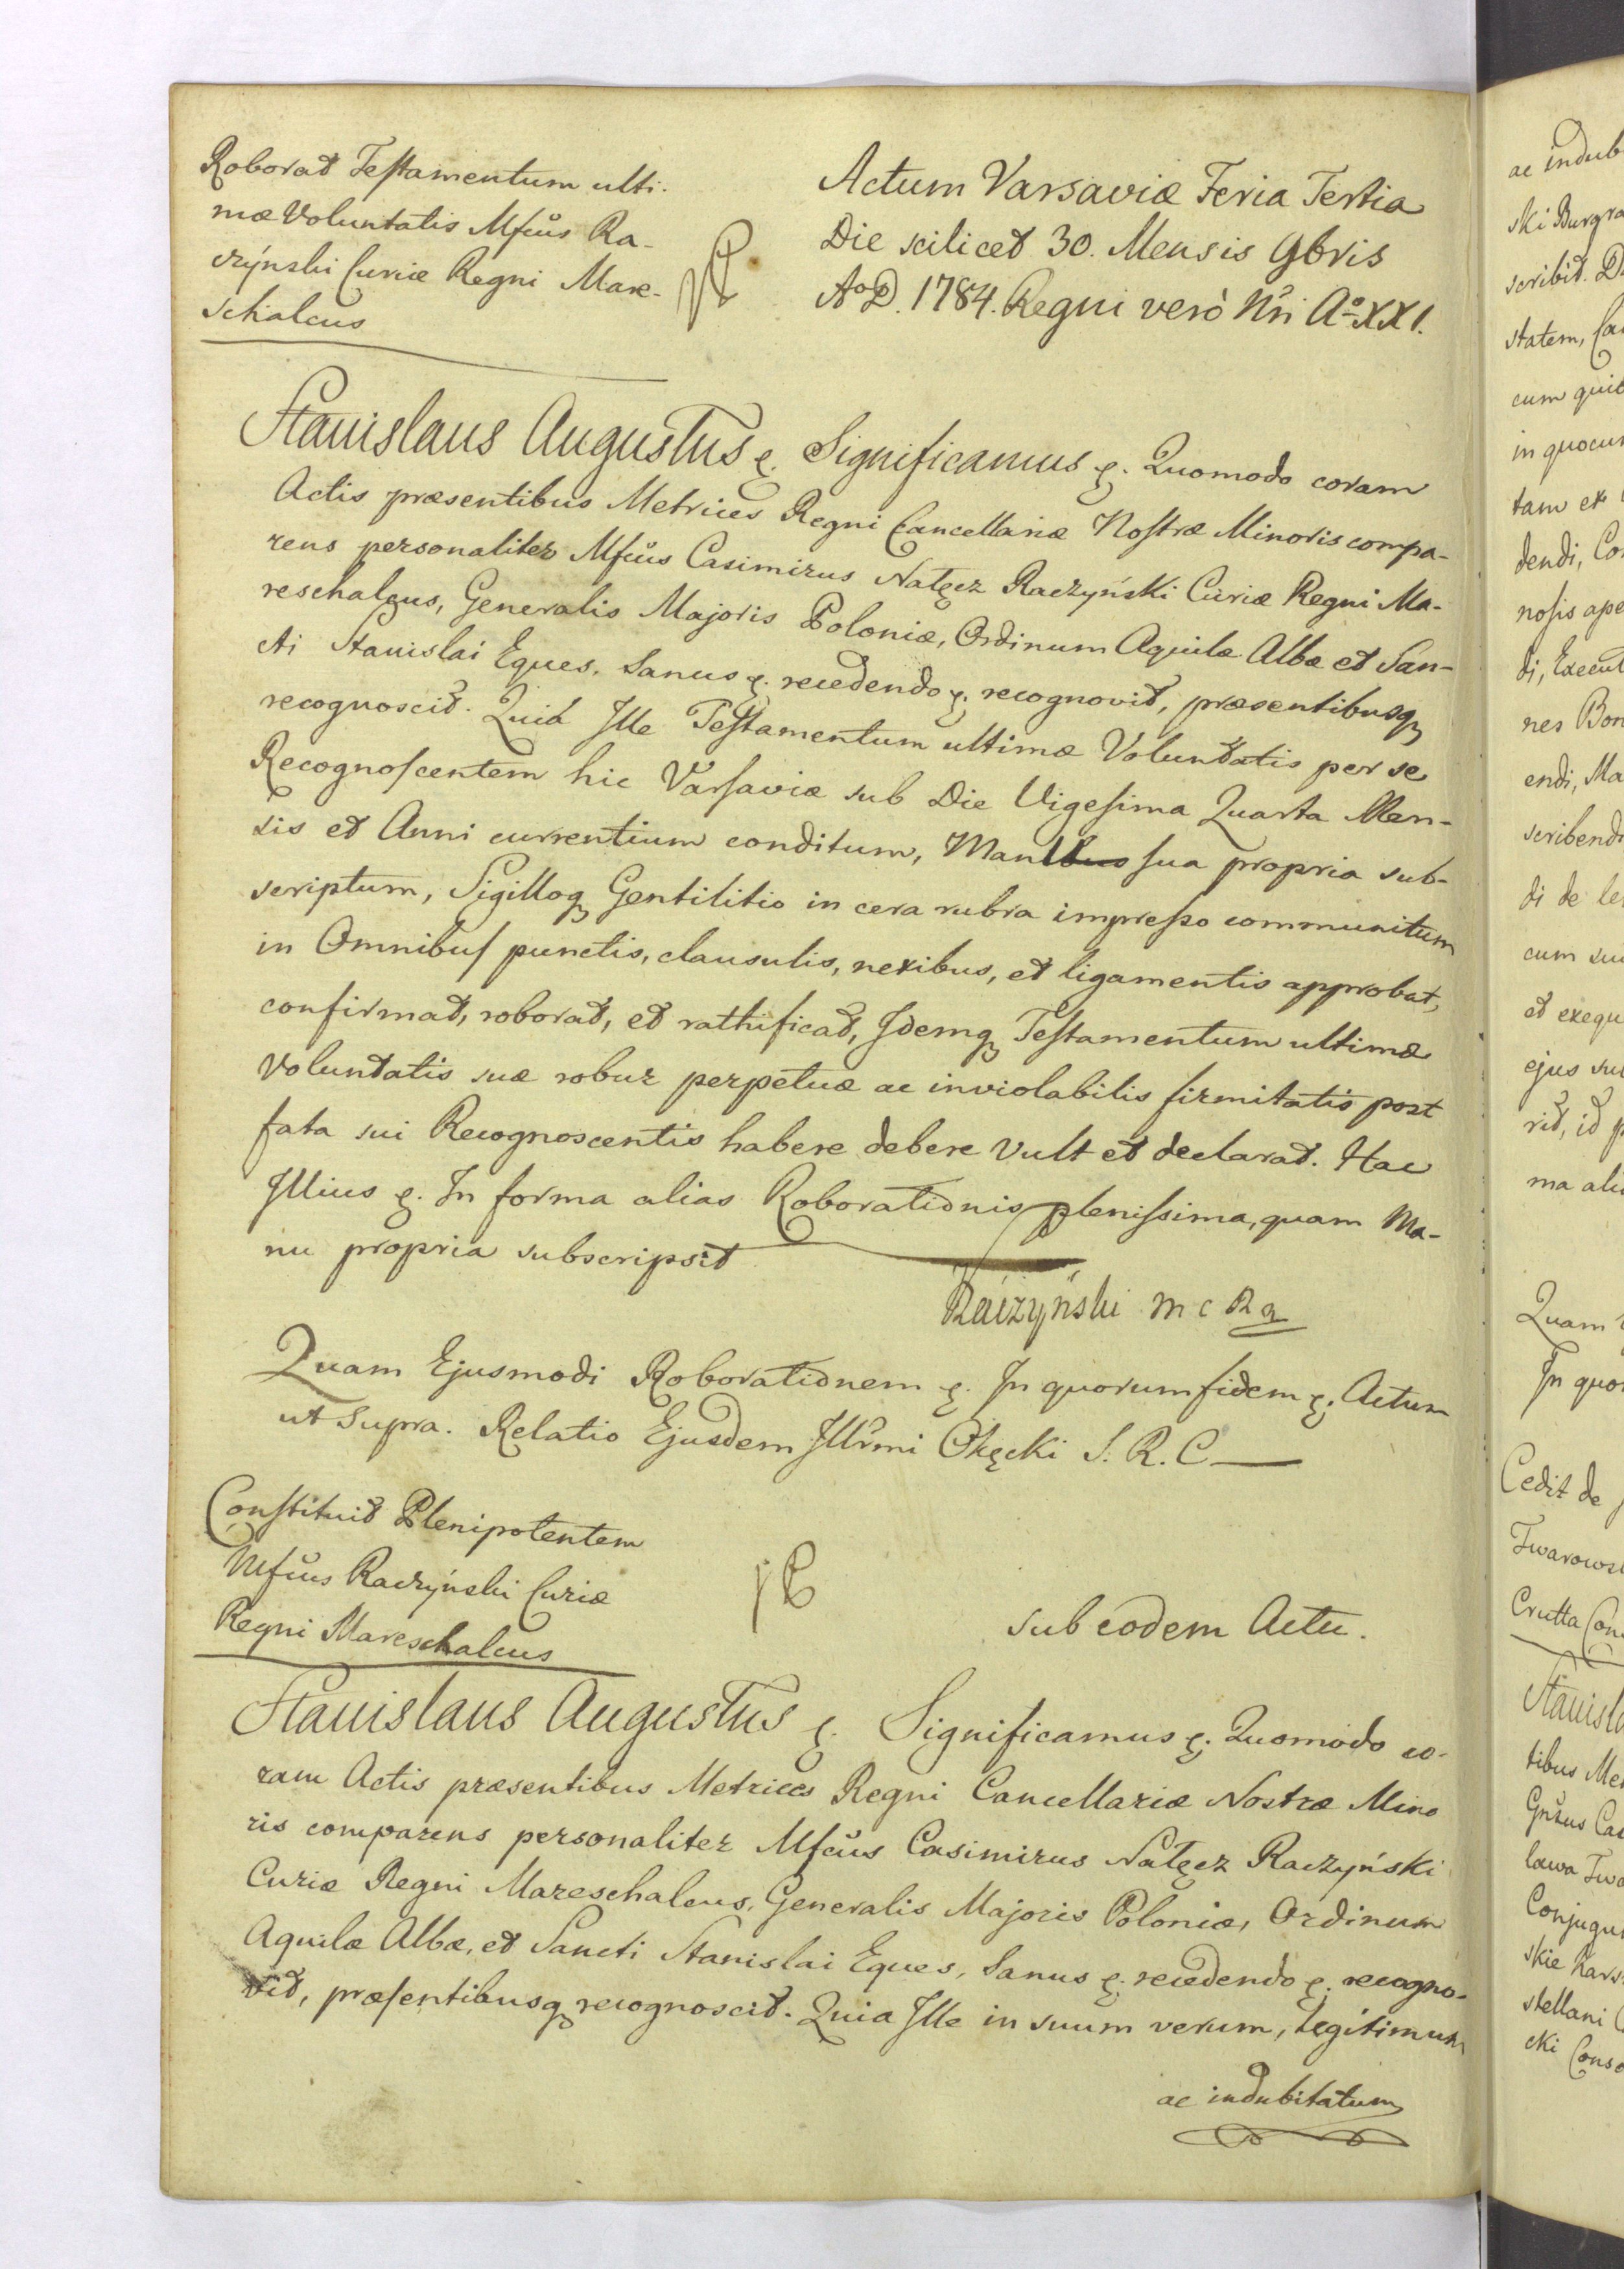 Roborat Testamentum ulti-
mæ Voluntatis Mfcus Ra-
czÿnski Curiæ Regni Mare-
schalcus
Actum Varsaviæ Feria Tertia
Die scilicet 30. Mensis 9bris
AoD. 1784. Regni verò Nri Ao XXI.
Stanislaus Augustus &. Significamus &. Quomodo coram
Actis præsentibus Metrices Regni Cancellariæ Nostræ Minoris compa-
rens personaliter Mfcus Casimirus Nałęcz Raczyński Curiæ Regni Ma-
reschalcus, Generalis Majoris Poloniæ, Ordinum Aquilæ Albæ et San-
cti Stanislai Eques. Sanus &. recedendo &. recognovit, præsentibusq
recognoscit. Quia Ille Testamentum ultimæ Voluntatis per se
Recognoscentem hic Varsaviæ sub Die Vigesima Quarta Men-
sis et Anni currentium conditum, Manu sua propria sub-
scriptum, Sigilloq Gentilitio in cera rubra impresso communitum
in Omnibus punctis, clausulis, nexibus, et ligamentis approbat,
confirmat, roborat, et rathificat, Idemq Testamentum ultimæ
Voluntatis suæ robur perpetuæ ac inviolabilis firmitatis post
fata sui Recognoscentis habere debere Vult et declarat. Hac
Illius &. In forma alias Roborationis plenissima, quam Ma-
nu propria subscripsit
Raczyński m c R
Quam Ejusmodi Roborationem &. In quorum fidem &. Actum
ut Supra. Relatio Ejusdem Illrmi Okęcki S. R. C
Constituit Plenipotentem
Mfcus Raczÿnski Curiæ
Regni Mareschalcus
sub eodem Actu.
Stanislaus Augustus &. Significamus &. Quomodo co-
ram Actis præsentibus Metrices Regni Cancellariæ Nostræ Mino
ris comparens personaliter Mfcus Casimirus Nałęcz Raczyński
Curiæ Regni Mareschalcus, Generalis Majoris Poloniæ, Ordinum
Aquilæ Albæ, et Sancti Stanislai Eques, Sanus &. recedendo &. recogno-
vit, præsentibusq recognoscit. Quia Ille in suum verum, legitimum
ac indubitatum
ac indub
ski Burgra
scribit. D
statem, Ca
cum quib
in quocun
tam ex
dendi, Co
nosis ape
di, Execut
nes Bon
endi, Ma
scribendi
di de le
cum su
et exequ
ejus su
rit, id p
ma ali
Quam
In quo
Cedit de
Twarows
Crutta Con
Stanisla
tibus Me
Gnrus Ca
lawa Twa
Conjugu
skie
stellani
cki Conso